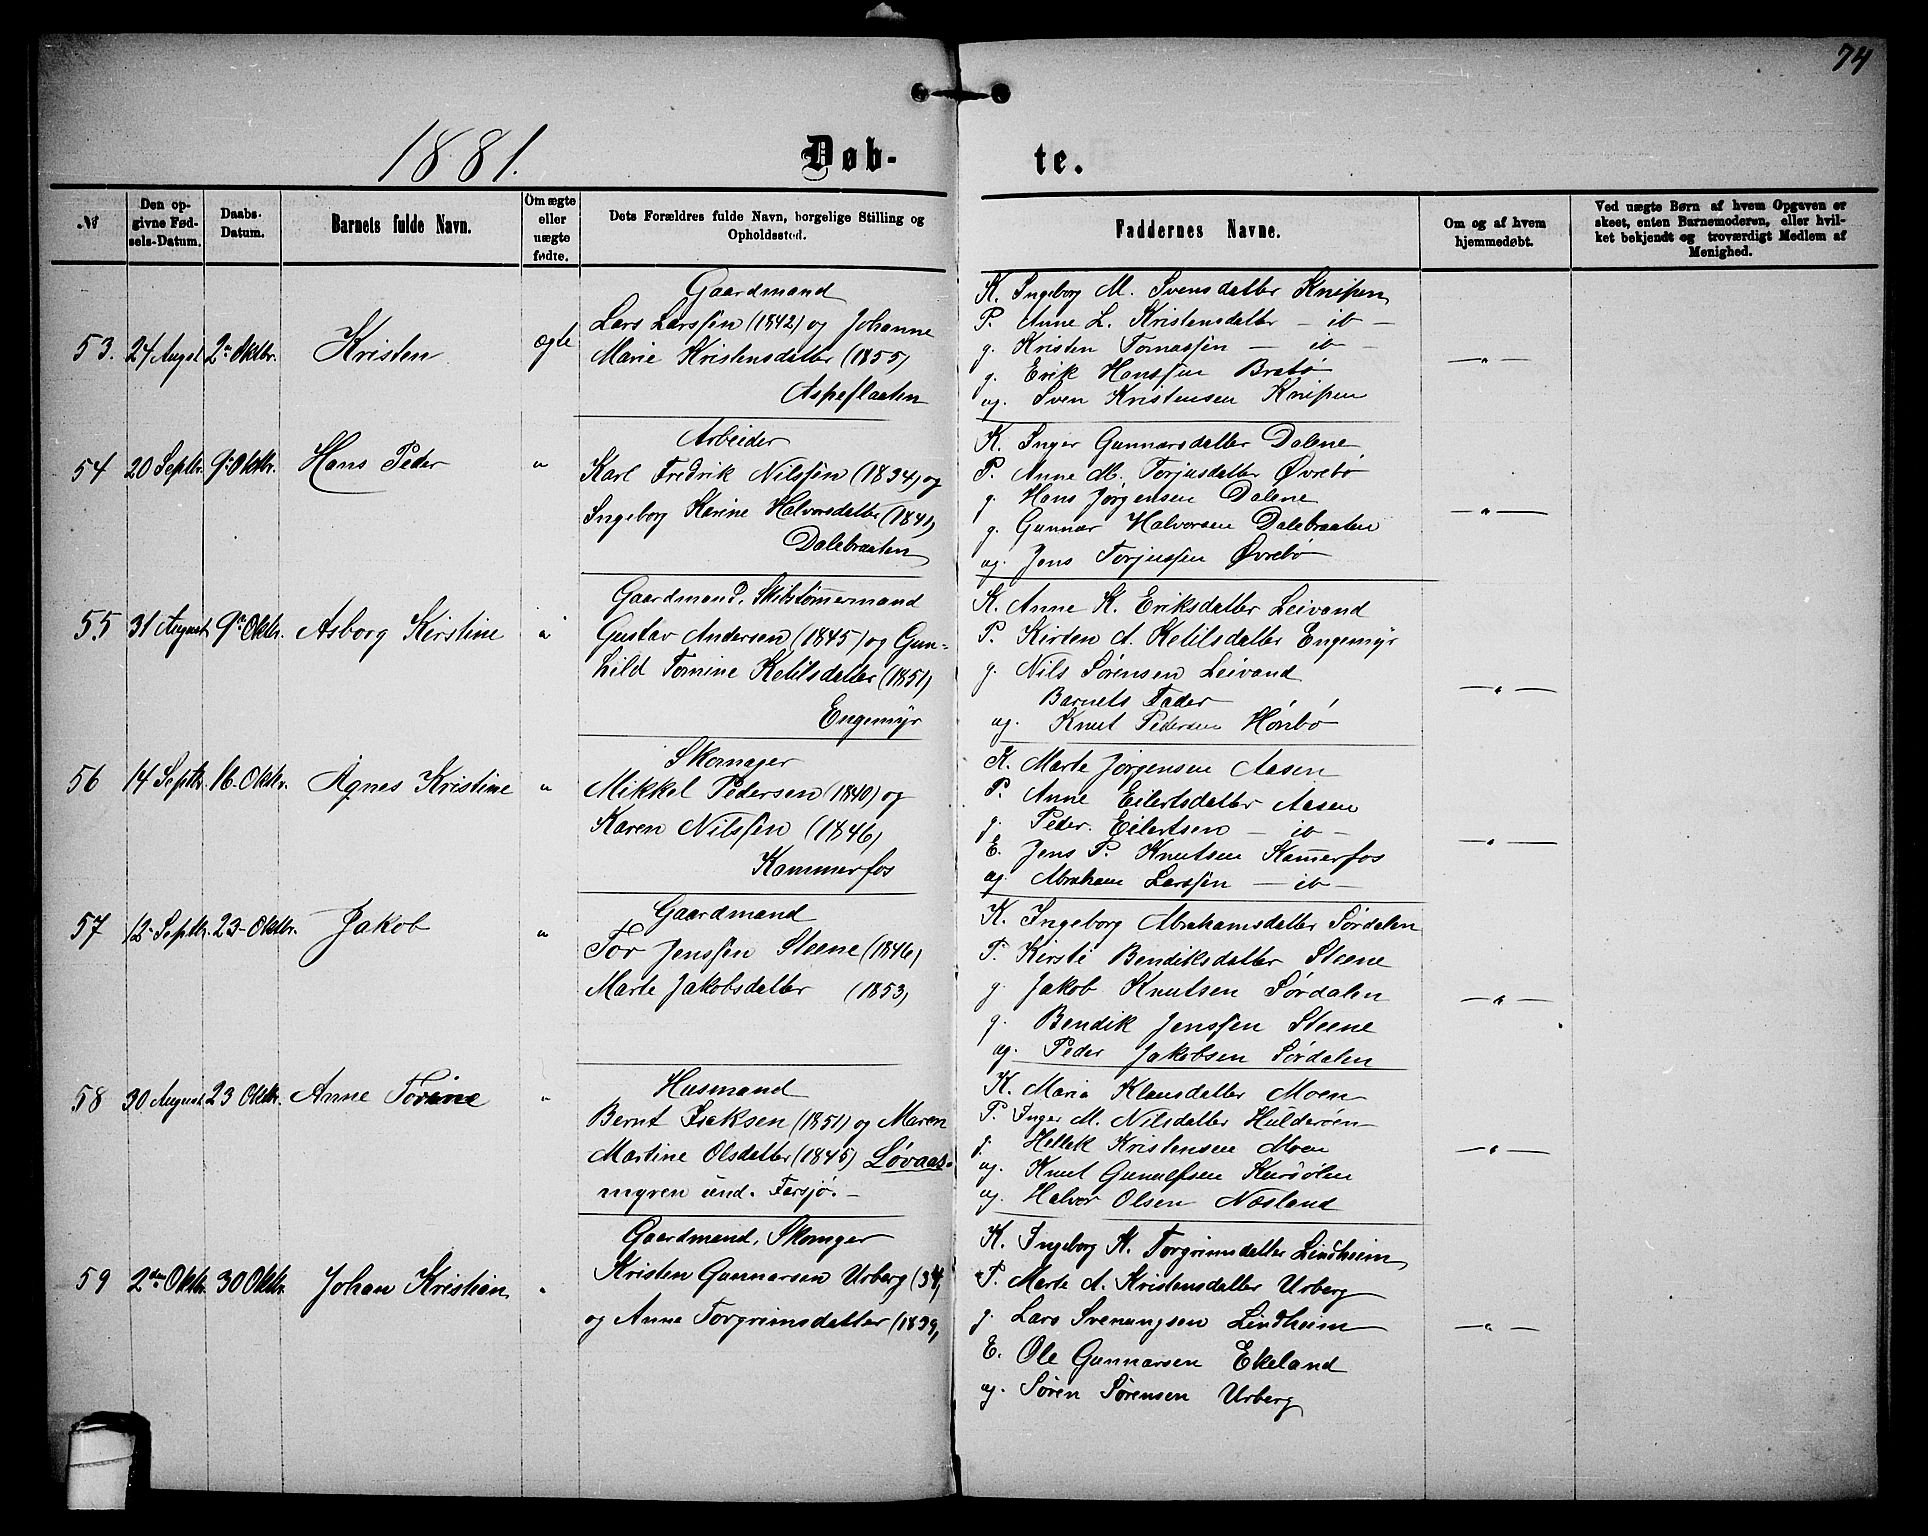 74
1881.
Døb-
te.
№
Den op-
givne Fød-
sels-Datum.
Daabs-
Datum.
Barnets fulde Navn.
Om ægte
eller
uægte
fødte.
Dets Forældres fulde Navn, borgelige Stilling og
Opholdssted.
Faddernes Navne.
Om og af hvem
hjemmedøbt.
Ved uægte Børn af hvem Opgaven er
skeet, enten Barnemoderen, eller hvil-
ket bekjendt og troværdigt Medlem af
Menighed.
53. 24 August 2den Oktbr. Kristen ægte
Gaardmand
Lars Larssen (1842) og Johanne
Marie Kristensdatter (1855)
Aspeflaaten
K. Ingeborg M. Svensdatter Knipen
P. Anne L. Kristensdatter - ib -
g. Kristen Tomassen - ib -
g. Erik Hanssen Brebø
ug. Sven Kristensen Knipen
— „ —
54 20 Septbr. 9de Oktbr. Hans Peder "
Arbeider
Karl Fredrik Nilssen (1834) og
Ingeborg Karine Halvorsdatter (1841)
Dalebraaten
K. Inger Gunnarsdatter Dalene
P. Anne M. Torjusdatter Øvrebø
g. Hans Jørgensen Dalene
g. Gunnar Halvorsen Dalebraaten
ug. Jens Torjussen Øvrebø
— „ —
55 31 August 9de Oktbr. Asborg Kirstine "
Gaardmand, Skibstømmermand
Gustav Andersen (1845) og Gun-
hild Tomine Ketilsdatter (1851)
Engemyr
K. Anne K. Eriksdatter Leivand
P. Kirsten A. Ketilsdatter Engemyr
g. Nils Sørensen Leivand
Barnets Fader
ug. Knut Pedersen Hønbø
— „ —
56 14 Septbr. 16. Oktbr. Agnes Kristine "
Skomager
Mikkel Pedersen (1840) og
Karen Nilssen (1846)
Kammerfos
K. Marte Jørgensen Aasen
P. Anne Eilertsdatter Aasen
g. Peder Eilertsen - ib -
E. Jens P. Knutsen Kamerfos
ug. Abraham Larssen - ib -
— „ —
57 12 Septbr. 23 Oktbr. Jakob "
Gaardmand
Tor Jenssen Steene (1846)
Marte Jakobsdatter (1853)
K. Ingeborg Abrahamsdatter Sørdalen
P. Kirsti Bendiksdatter Steene
g. Jakob Knutsen Sørdalen
g. Bendik Jenssen Steene
ug. Peder Jakobsen Sørdalen
— „ —
58 30 August 23 Oktbr. Anne Torine "
Husmand
Bernt Isaksen (1851) og Maren
Martine Olsdatter (1845) Løvaas-
myren und. Farsjø. -
K. Maria Klausdatter Moen
P. Inger M. Nilsdatter Hulderøen
g. Hellek Kristensen Moen
ug. Knut Gunulfsen
ug. Halvor Olsen Næsland
— „ —
59 2den Oktbr. 30 Oktbr. Johan Kristian "
Gaardmand, Skomger
Kristen Gunnarsen Urberg (34)
og Anne Torgrimsdatter (1839)
K. Ingeborg K. Torgrimsdatter Lindheim
P. Marte A. Kristensdatter Urberg
g. Lars Svenungsen Lindheim
E. Ole Gunnarsen Ekeland
ug. Søren Sørensen Urberg
— „ —